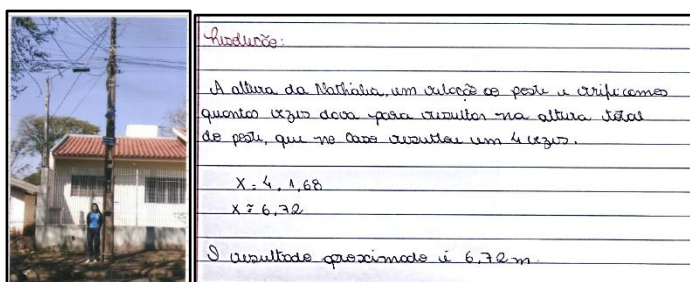 Produção:
A altura da Nathália, em relação ao poste e verificamos
quantas vezes dava para resultar na altura total
do poste, que no caso resultou em 4 vezes.
X = 4 . 1,68
X = 6,72
O resultado aproximado é 6,72 m.